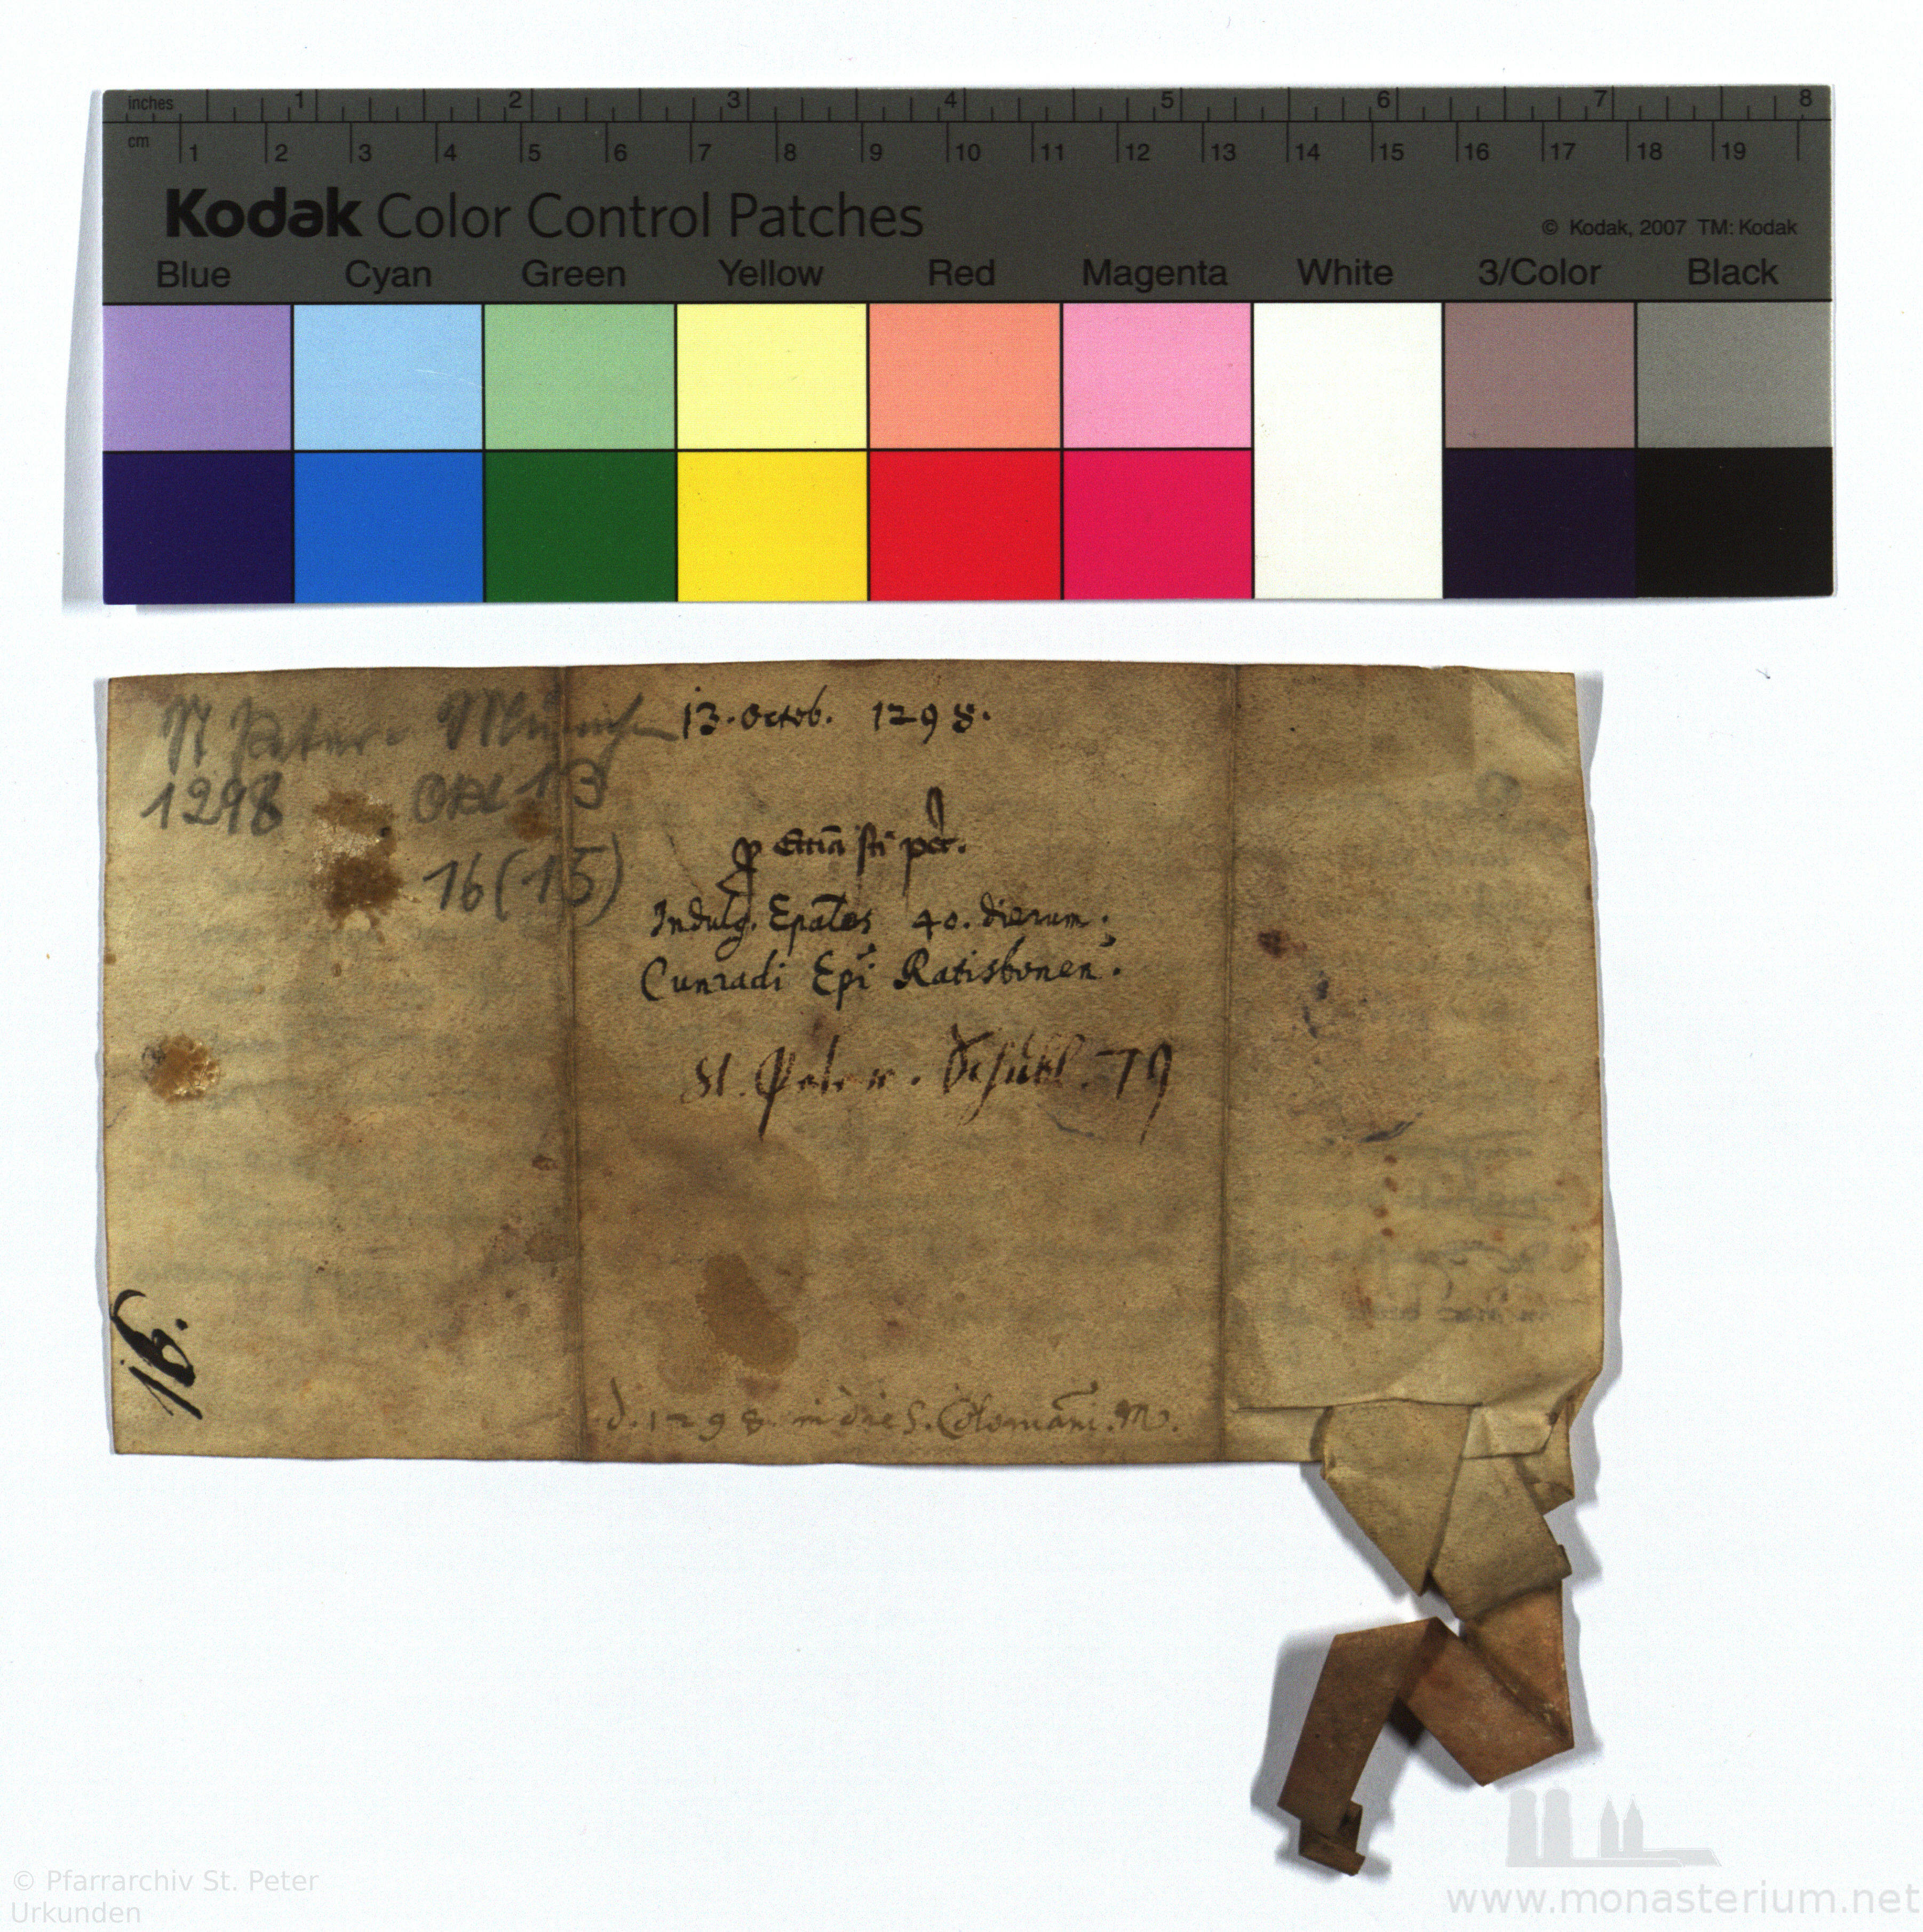 inches 1 2 3 4 5 6 7 8
cm 1 2 3 4 5 6 7 8 9 10 11 12 13 14 15 16 17 18 19
Kodak Color Control Patches
© Kodak, 2007 TM: Kodak
Blue Cyan Green Yellow Red Magenta White 3/Color Black
Peter München
13. Octob. 1298.
1298 Okt 13
16 (15)
Indulg. Epales 40. dierum.
Cunradi Epi Ratisbonen.
St. Peter. 79
16.
d. 1298 in die S. Colomani. M.
© Pfarrarchiv St. Peter
Urkunden
www.monasterium.net